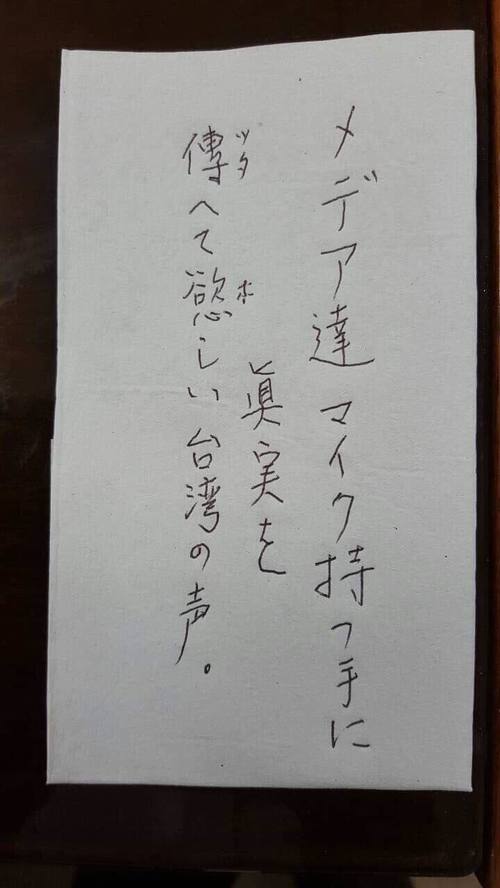 メデア達マイク持つ手に
眞実を
傳へて慾しい台湾の声。
ツタ
ホ